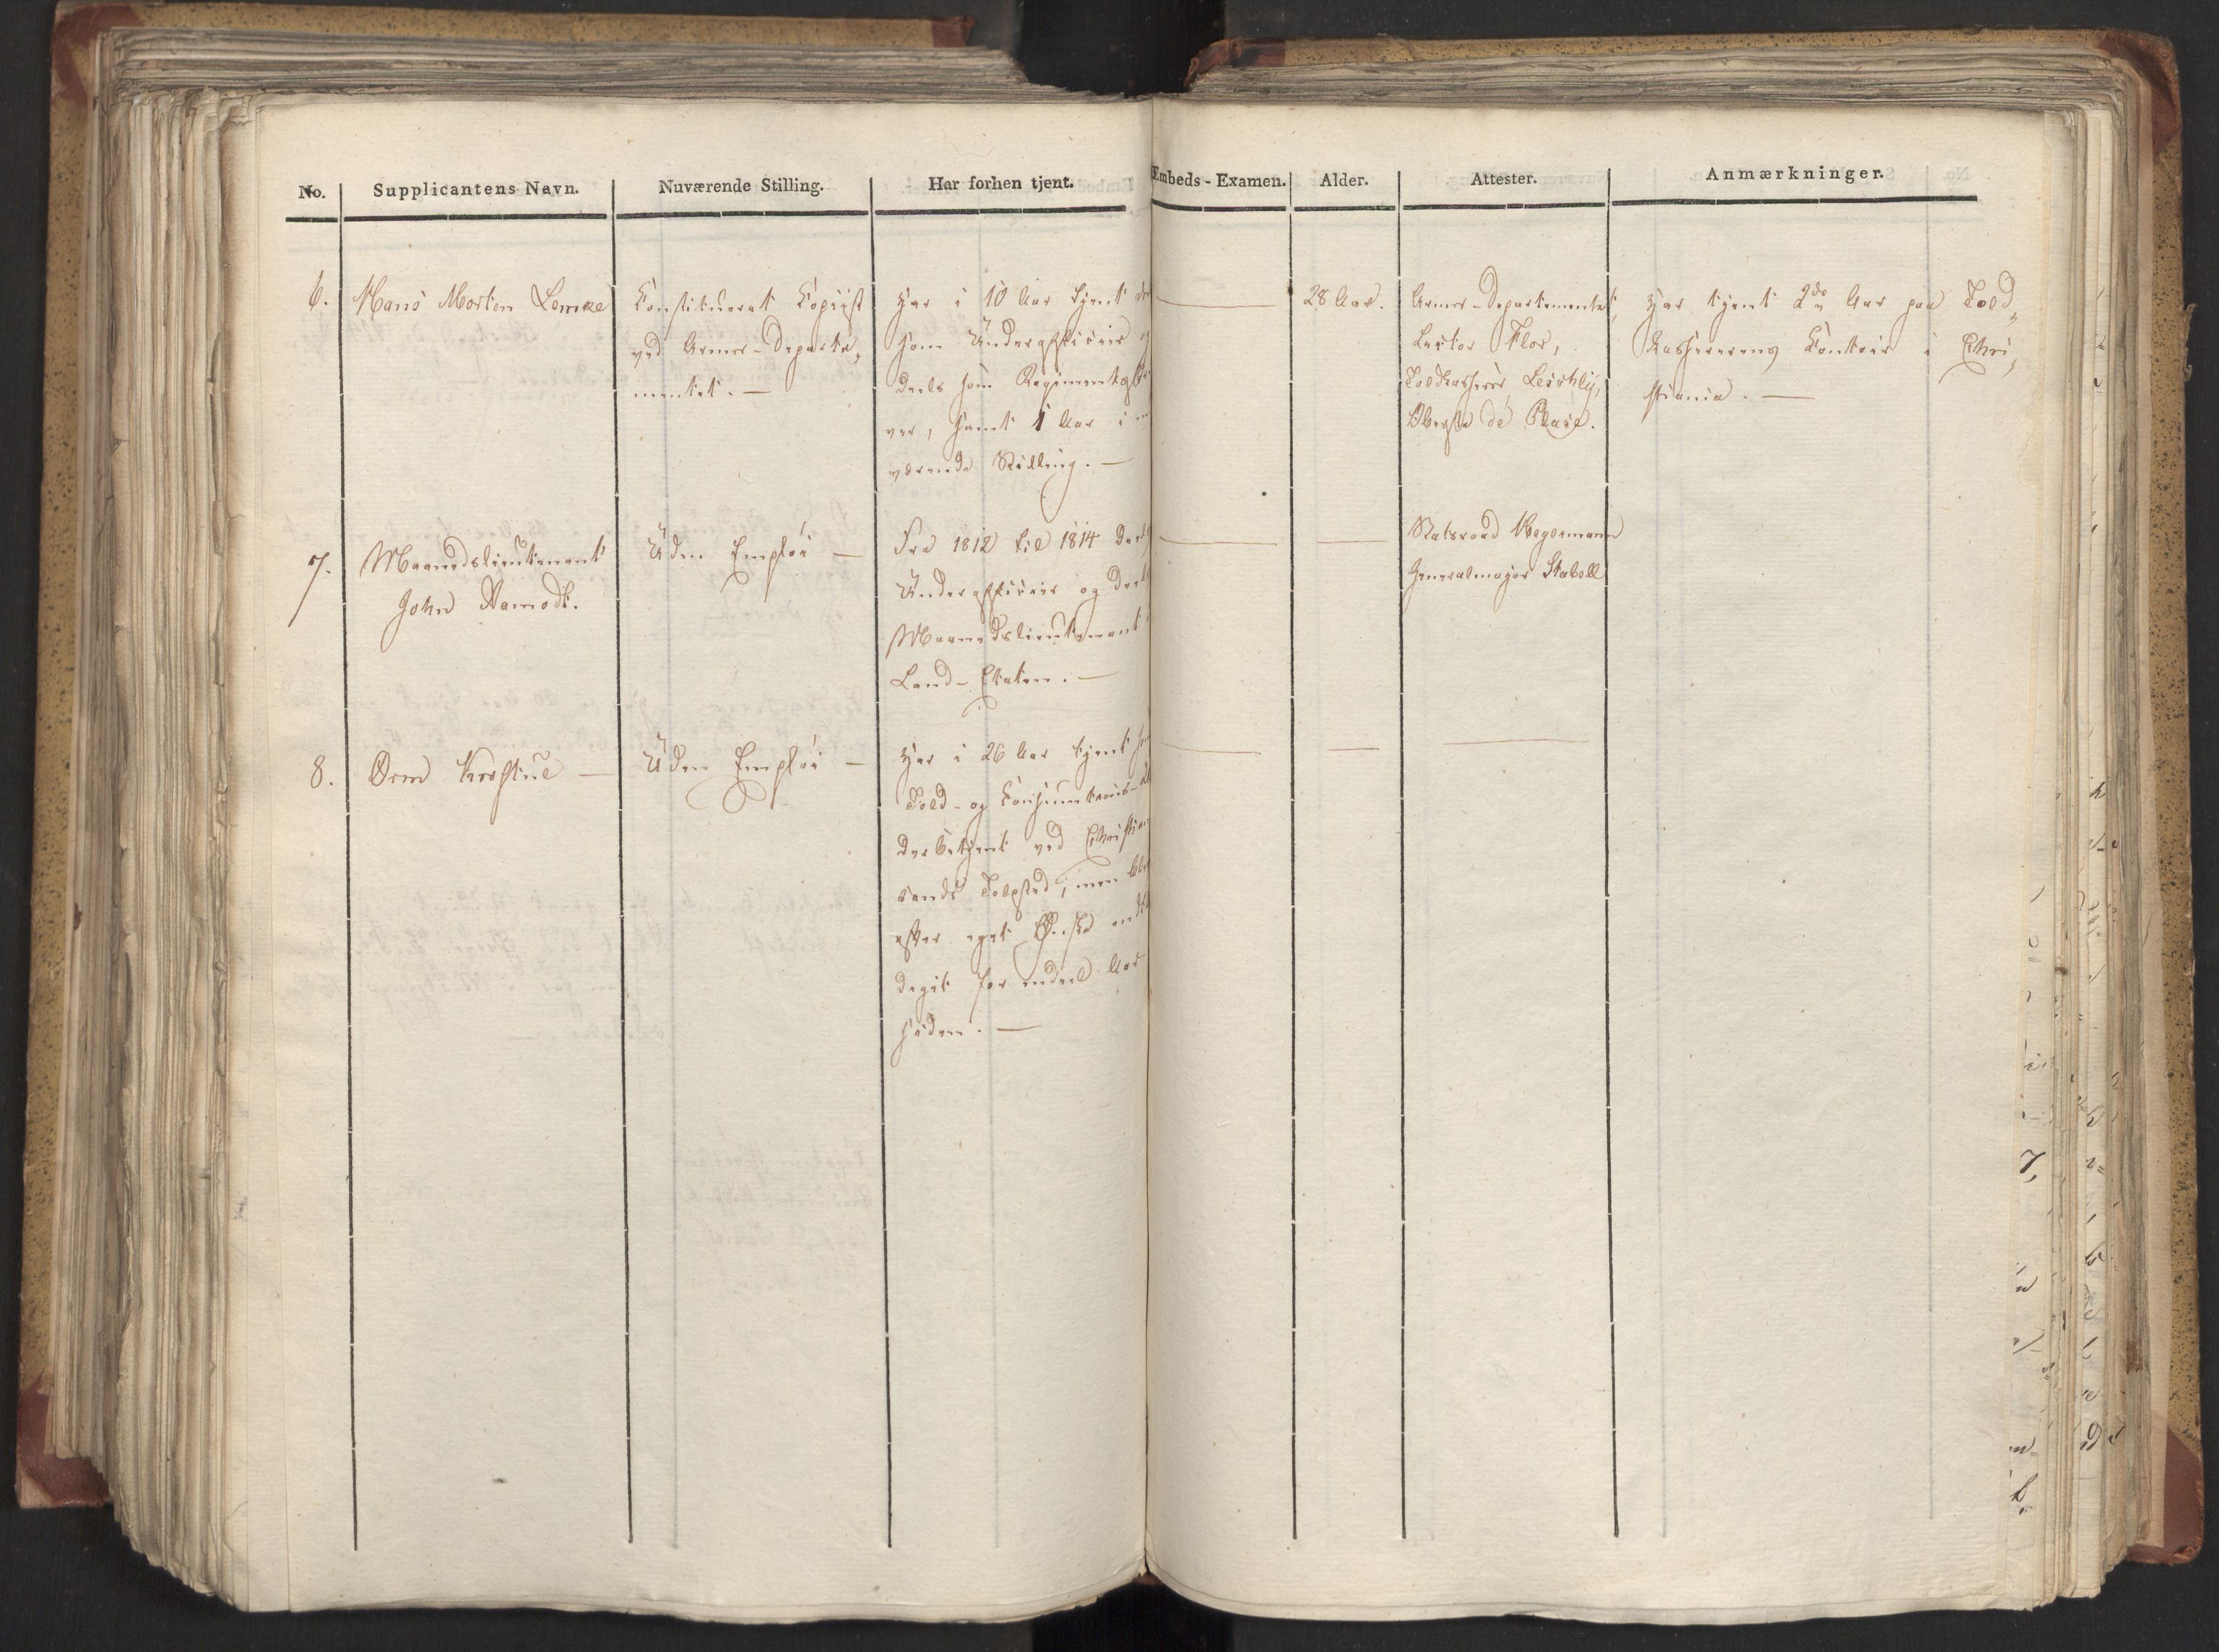 No. Supplicantens Navn. Nuværende Stilling. Har forhen tjent. Embeds-Examen. Alder. Attester. Anmærkninger.
6. Hans Morten Lemke
Constitueret Copiist
ved Armee-Departe„
mentet. —
Har i 10 Aar tjent
som Underofficeer
deels som Regimentsskri
ver, samt 1 Aar i
værende Stilling. —
28 Aar.
Armee-Departementet,
Lector Flor,
Toldkasserer
Oberst de
Har tjent 2de Aar paa Told„
kassererens Contoir i Chri„
stiania. —
7. Maanedslieutenant
John Hamodt.
Uden Emploi —
Fra 1812 til 1814 deels
Underofficeer og deels
Maanedslieutenant
Land-Etaten. —
Statsraad Hegermann
Generalmajor Stabell
8. Orm —
Uden Emploi —
Har i 26 Aar tjent som
Told- og Consumtions-
derbetjent ved Christian
sands Toldsted, men blev
efter eget Ønske
diget for endeel Aar
siden. —